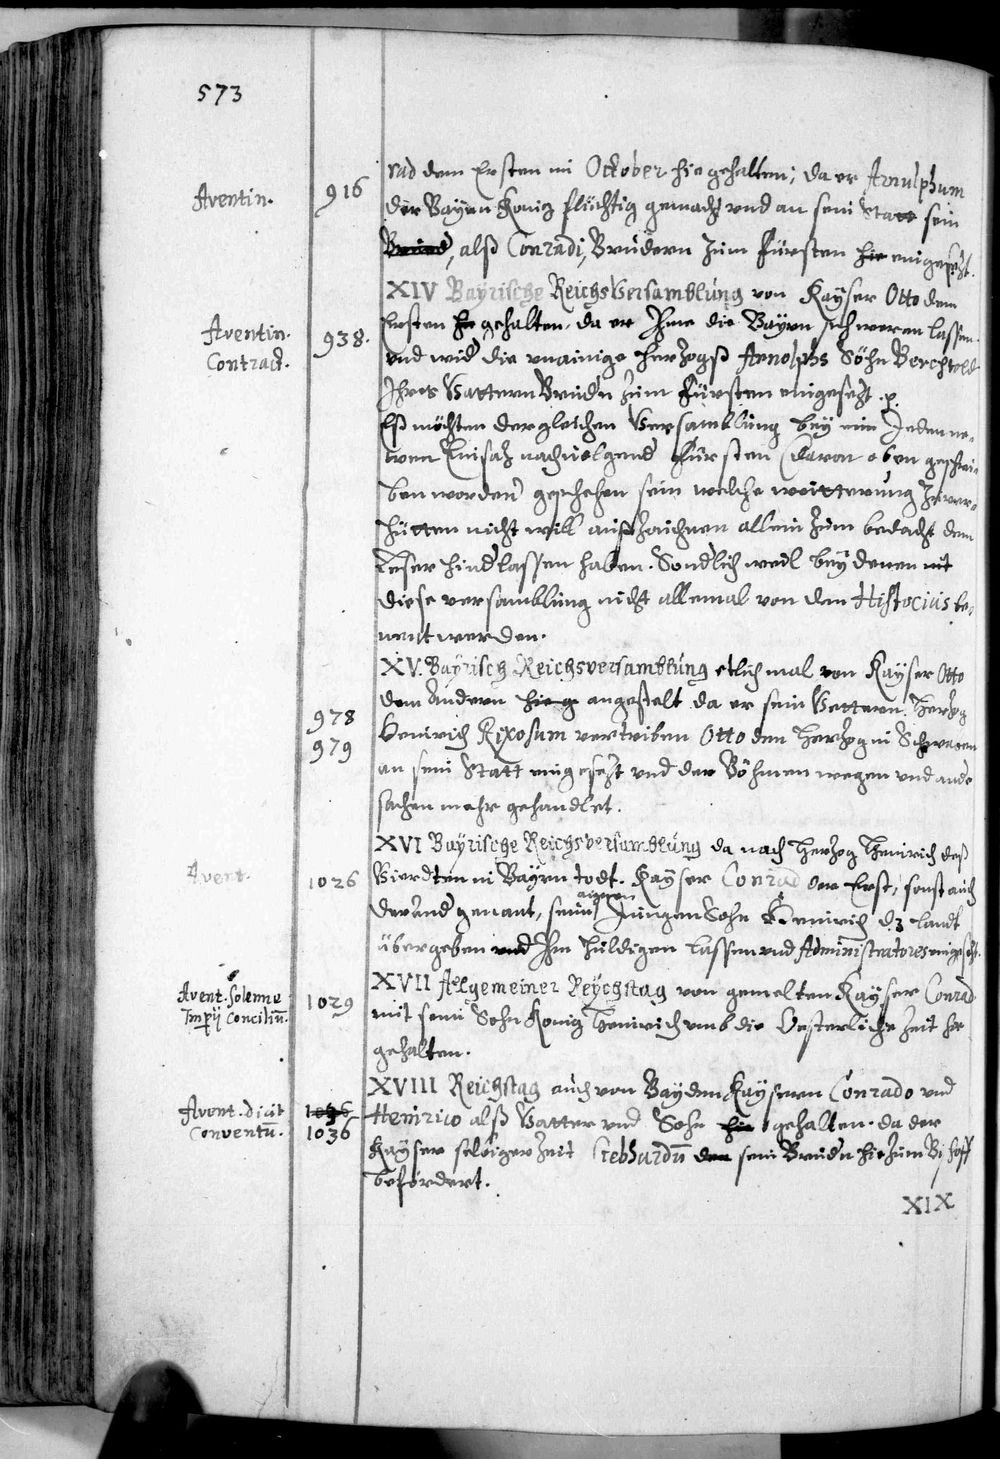 573
Aventin.
916
rad dem Ersten im October hie gehalten; da er Arnulphum
der Bayrn Konig flüchtig gemacht vnd an sein Statt sein
Brued, alß Conradi, Bruedern zum Fürsten hie eingesezt.
XIV Bayrische Reichs Versamblung von Kayser Otto dem
Aventin.
Contract.
938.
Ersten hie gehalten, da er Ihme die Bayrn schweren lassen,
vnd wid die vnainige Herzogs Arnolphs Söhn Berchtold
Ihres Vattern Brudn zum Fürsten eingesezt. p.
Eß möchten dergleichen Versamblung bey eim Jeden ne-
wen Einsaz nachuolgend Fürsten (davon oben geschri-
ben worden) geschehen sein welche weitterung zu ver-
hütten nicht will aufzaichnen allein zum bedacht dem
Leser hind lassen haben. Sondlich weil bey denen mit
diese versamblung nicht allemal von den Historicis be-
nent werden.
XV. Bayrisch Reichsversamblung etlich mal von Kayser Otto
dem Andern hie g angestelt da er sein Vettern Herzog
978
979
Heinrich Rixosum vertriben Otto den Herzog in Schwaben
an sein Statt eingesezt vnd der Böhmen wegen vnd ande
sachen mehr gehandlet.
XVI Bayrische Reichsversamblung da nach Herzog Heinrich deß
Avent.
1026
Vierdten in Bayrn todt. Kayser Conrad der Erst, sonst auch
der And genant, seinen aignen Jungen Sohn Heinrich dz landt
übergeben vnd Ihm huldigen lassen vnd Administratores eingesezt.
Avent. Solenne
Imperij Conciliū.
1029
XVII Allgemeiner Reychstag von gemelten Kayser Conrad
mit sein Sohn Konig Heinrich vmb die Oesterliche Zeit hie
gehalten.
XVIII Reichstag auch von Bayden Kaysern Conrado vnd
Avent. dicit
Conventū.
1036
Heinrico alß Vatter vnd Sohn hie gehalten. da der
Kayser selbiger Zeit Gebhardū den sein Brudn hie zum Bischoff
befördert.
XIX